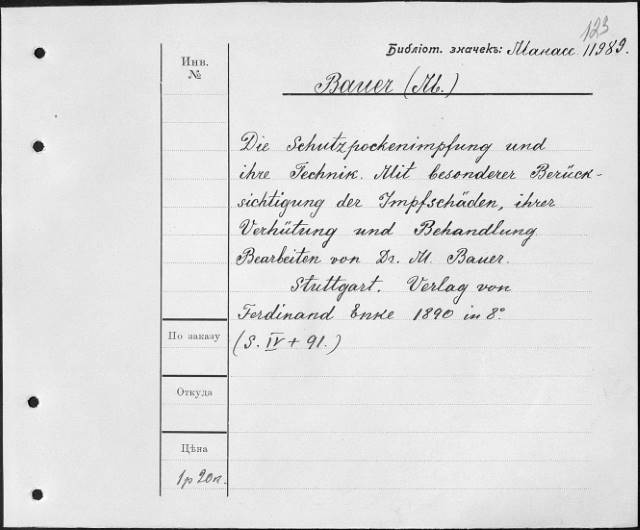 123
Библіот. значекъ: Манасс. 11989.
Инв.
№
Bauer (M.)
Die Schutzpockenimpfung und
ihre Technik. Mit besonderer Berück-
sichtigung der Impfschäden, ihrer
Verhütung und Behandlung
Bearbeiten von Dr. M. Bauer.
Stuttgart. Verlag von
Ferdinand Enke 1890 in 8°
(S. IV + 91.)
По заказу
Откуда
Цѣна
1р 20к.